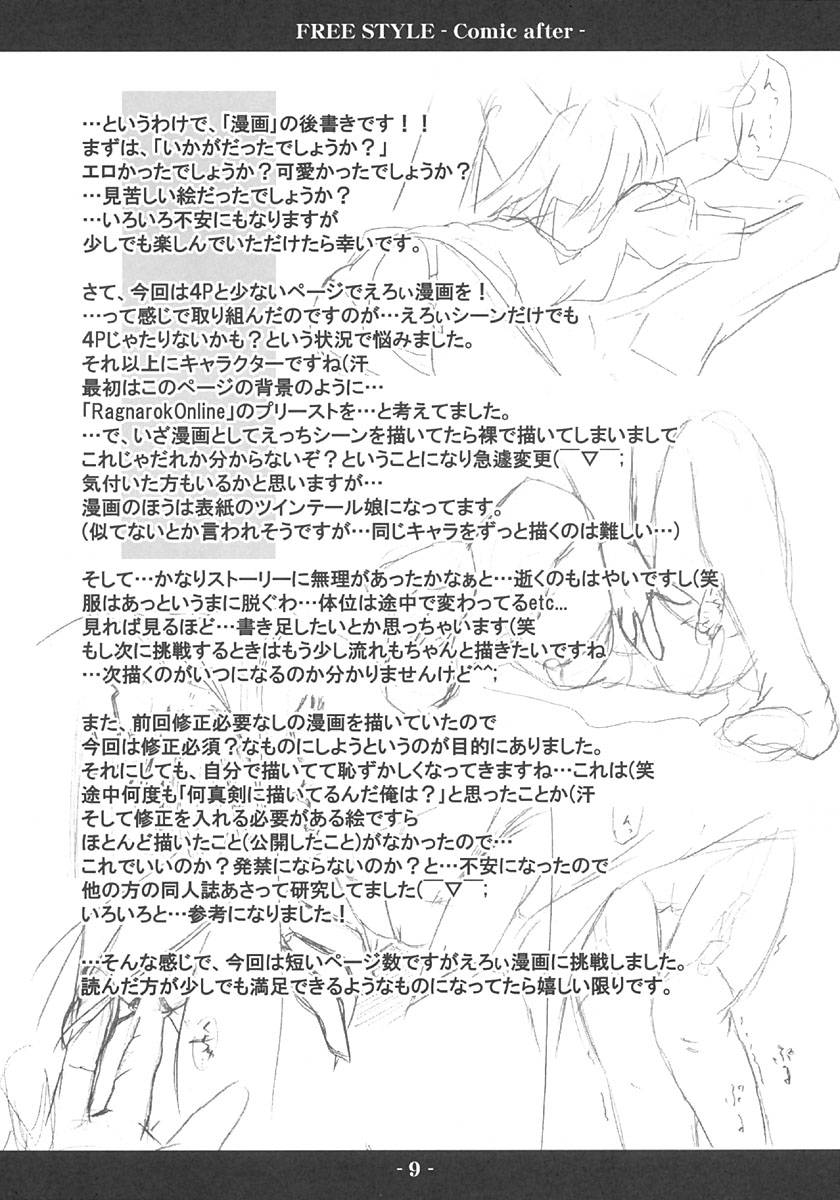 FREE STYLE - Comic after -
…というわけで、「漫画」の後書きです！！
まずは、「いかがだったでしょうか？」
エロかったでしょうか？可愛かったでしょうか？
…見苦しい絵だったでしょうか？
…いろいろ不安にもなりますが
少しでも楽しんでいただけたら幸いです。
さて、今回は4Pと少ないページでえろぃ漫画を！
…って感じで取り組んだのですのが…えろぃシーンだけでも
4Pじゃたりないかも？という状況で悩みました。
それ以上にキャラクターですね(汗
最初はこのページの背景のように…
「RagnarokOnline」のプリーストを…と考えてました。
…で、いざ漫画としてえっちシーンを描いてたら裸で描いてしまいまして
これじゃだれか分からないぞ？ということになり急遽変更(￣▽￣;
気付いた方もいるかと思いますが…
漫画のほうは表紙のツインテール娘になってます。
(似てないとか言われそうですが…同じキャラをずっと描くのは難しい…)
そして…かなりストーリーに無理があったかなぁと…逝くのもはやいですし(笑
服はあっというまに脱ぐわ…体位は途中で変わってるetc…
見れば見るほど…書き足したいとか思っちゃいます(笑
もし次に挑戦するときはもう少し流れもちゃんと描きたいですね
…次描くのがいつになるのか分かりませんけど^^;
また、前回修正必要なしの漫画を描いていたので
今回は修正必須？なものにしようというのが目的にありました。
それにしても、自分で描いてて恥ずかしくなってきますね…これは(笑
途中何度も「何真剣に描いてるんだ俺は？」と思ったことか(汗
そして修正を入れる必要がある絵ですら
ほとんど描いたこと(公開したこと)がなかったので…
これでいいのか？発禁にならないのか？と…不安になったので
他の方の同人誌あさって研究してました(￣▽￣;
いろいろと…参考になりました！
…そんな感じで、今回は短いページ数ですがえろぃ漫画に挑戦しました。
読んだ方が少しでも満足できるようなものになってたら嬉しい限りです。
- 9 -